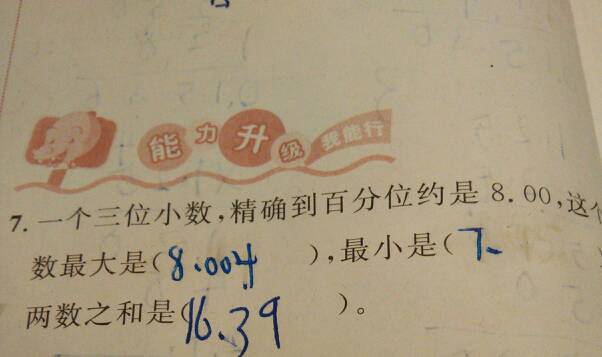 能力升级 我能行
7.一个三位小数,精确到百分位约是 8.00,这个
数最大是(8.004 ),最小是(7.
两数之和是(16.39 )。